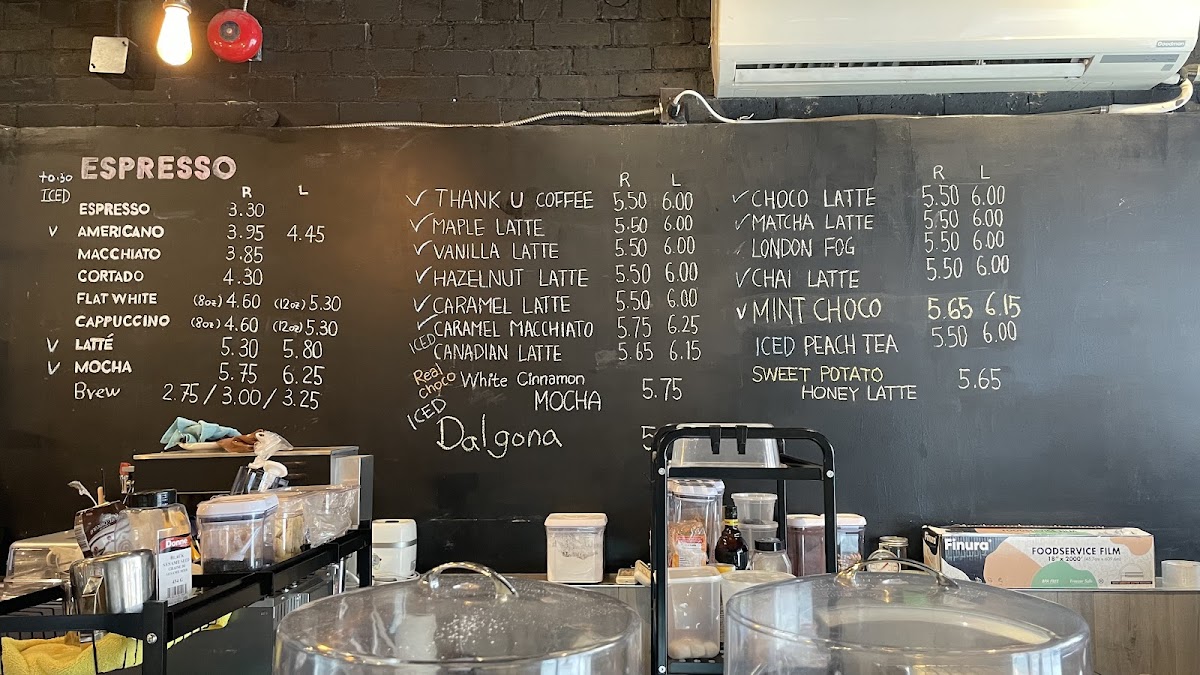 to:30
ICED
ESPRESSO
R L
ESPRESSO 3.30
✓ AMERICANO 3.95 4.45
MACCHIATO 3.85
CORTADO 4.30
FLAT WHITE (8oz) 4.60 (12oz) 5.30
CAPPUCCINO (8oz) 4.60 (12oz) 5.30
✓ LATTÉ 5.30 5.80
✓ MOCHA 5.75 6.25
Brew 2.75 / 3.00 / 3.25
R L
✓ THANK U COFFEE 5.50 6.00
✓ MAPLE LATTE 5.50 6.00
✓ VANILLA LATTE 5.50 6.00
✓ HAZELNUT LATTE 5.50 6.00
✓ CARAMEL LATTE 5.50 6.00
✓ CARAMEL MACCHIATO 5.75 6.25
ICED CANADIAN LATTE 5.65 6.15
Real choco White Cinnamon
MOCHA 5.75
ICED
Dalgona 5
R L
✓ CHOCO LATTE 5.50 6.00
✓ MATCHA LATTE 5.50 6.00
✓ LONDON FOG 5.50 6.00
✓ CHAI LATTE 5.50 6.00
✓ MINT CHOCO 5.65 6.15
ICED PEACH TEA 5.50 6.00
SWEET POTATO
HONEY LATTE 5.65
Finura
FOODSERVICE FILM
18" x 2000'